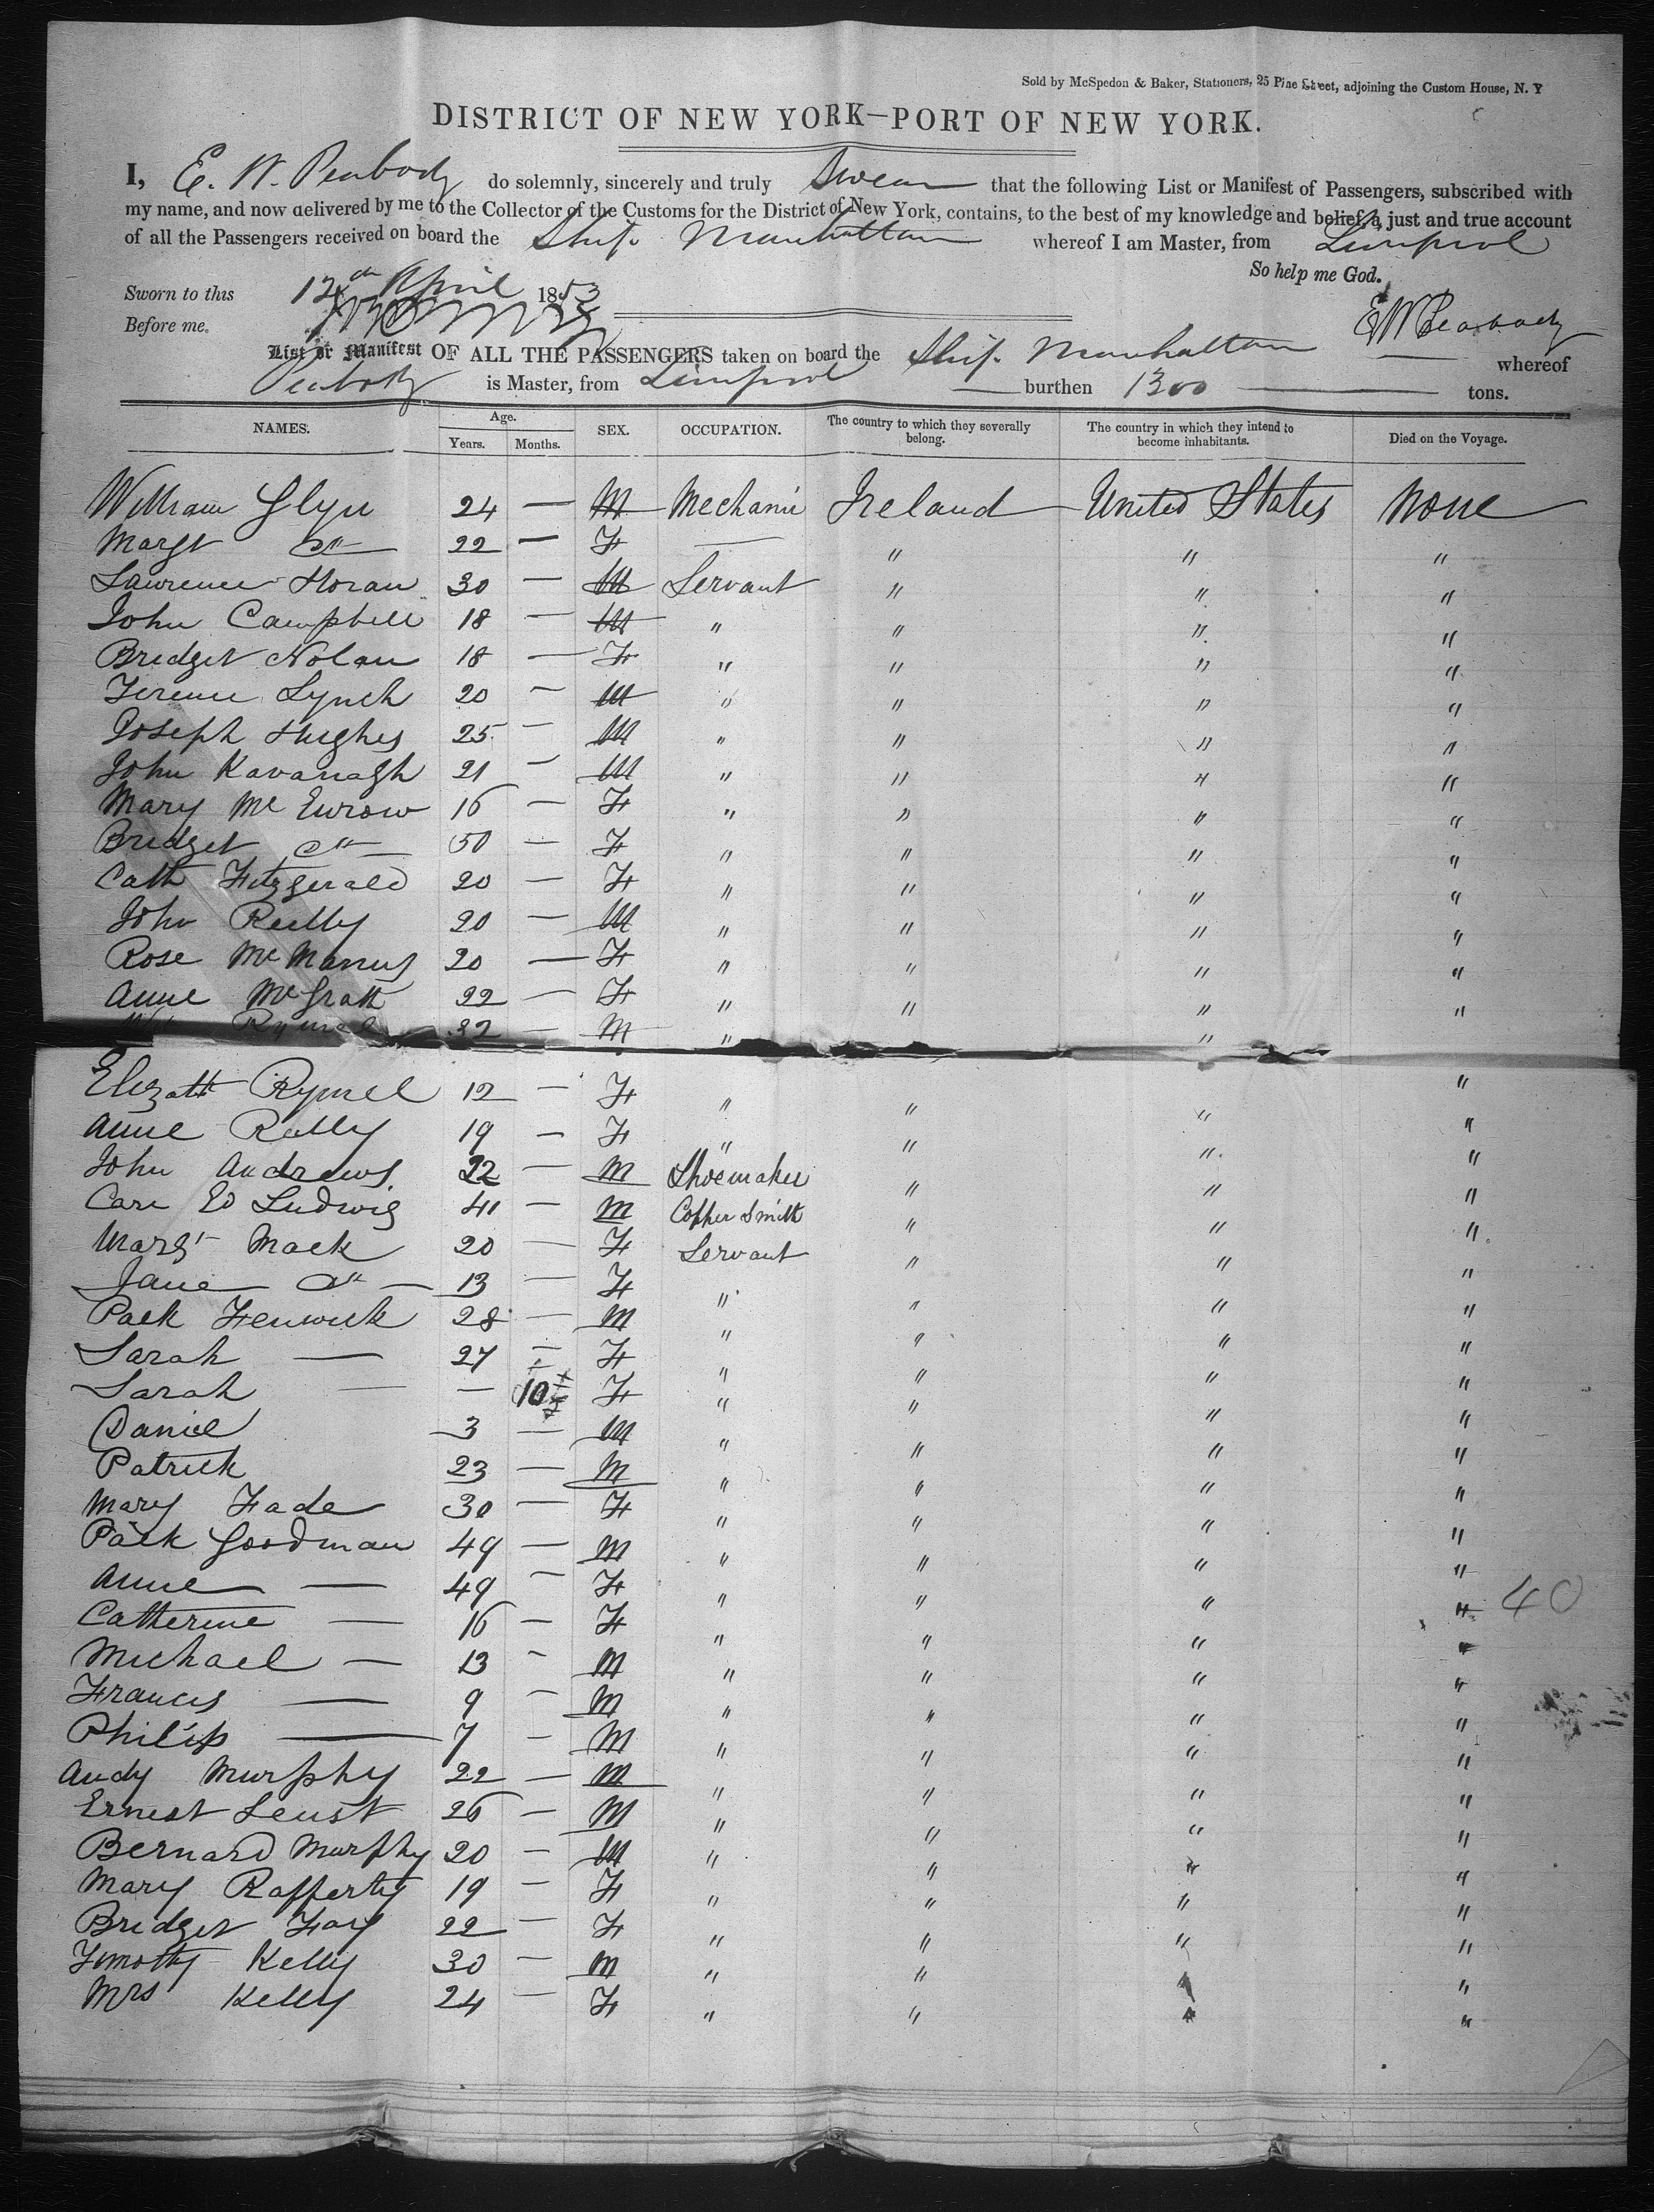 Sold by McSpedon & Baker, Stationers, 25 Pine Street, adjoining the Custom House, N. Y
DISTRICT OF NEW YORK—PORT OF NEW YORK.
I, E. W. Peabody do solemnly, sincerely and truly Swear that the following List or Manifest of Passengers, subscribed with
my name, and now delivered by me to the Collector of the Customs for the District of New York, contains, to the best of my knowledge and belief, a just and true account
of all the Passengers received on board the Ship Manhattan whereof I am Master, from Liverpool
So help me God.
Sworn to this 12th April 1853
Before me.
E W Peabody
List or Manifest OF ALL THE PASSENGERS taken on board the Ship Manhattan whereof
Peabody is Master, from Liverpool burthen 1300 tons.
NAMES. Age. Years. Months. SEX. OCCUPATION. The country to which they severally belong. The country in which they intend to become inhabitants. Died on the Voyage.
William Glyn 24 — M Mechanic Ireland United States None
Margt Do 22 — F — " " "
Lawrence Horan 30 — M Servant " " "
John Campbell 18 — M " " " "
Bridget Nolan 18 — F " " " "
Terence Lynch 20 — M " " " "
Joseph Hughes 25 — M " " " "
John Kavanagh 21 — M " " " "
Mary Mc Eurow 16 — F " " " "
Bridget Do 50 — F " " " "
Cath Fitzgerald 20 — F " " " "
John Reilly 20 — M " " " "
Rose McManus 20 — F " " " "
Anne McGrath 22 — F " " " "
Rymel 32 — M " "
Elizath Rymel 12 — F " " " "
Anne Reilly 19 — F " " " "
John Andrews 22 — M Shoemaker " " "
Carl Ed Ludwig 41 — M Copper Smith " " "
Margt Mack 20 — F Servant " " "
Jane Do — 13 — F " " " "
Patk Fenwick 28 — M " " " "
Sarah — 27 — F " " " "
Sarah — — 10 F " " " "
Daniel 3 — M " " " "
Patrick 23 — M " " " "
Mary Fade 30 — F " " " "
Patk Goodman 49 — M " " " "
Anne — 49 — F " " " "
Catherine — 16 — F " " " " 40
Michael — 13 — M " " " "
Francis — 9 — M " " " "
Philip — 7 — M " " " "
Andy Murphy 22 — M " " " "
Ernest Leust 26 — M " " " "
Bernard Murphy 20 — M " " " "
Mary Rafferty 19 — F " " " "
Bridget Foy 22 — F " " " "
Timothy Kelly 30 — M " " " "
Mrs Kelly 24 — F " " " "